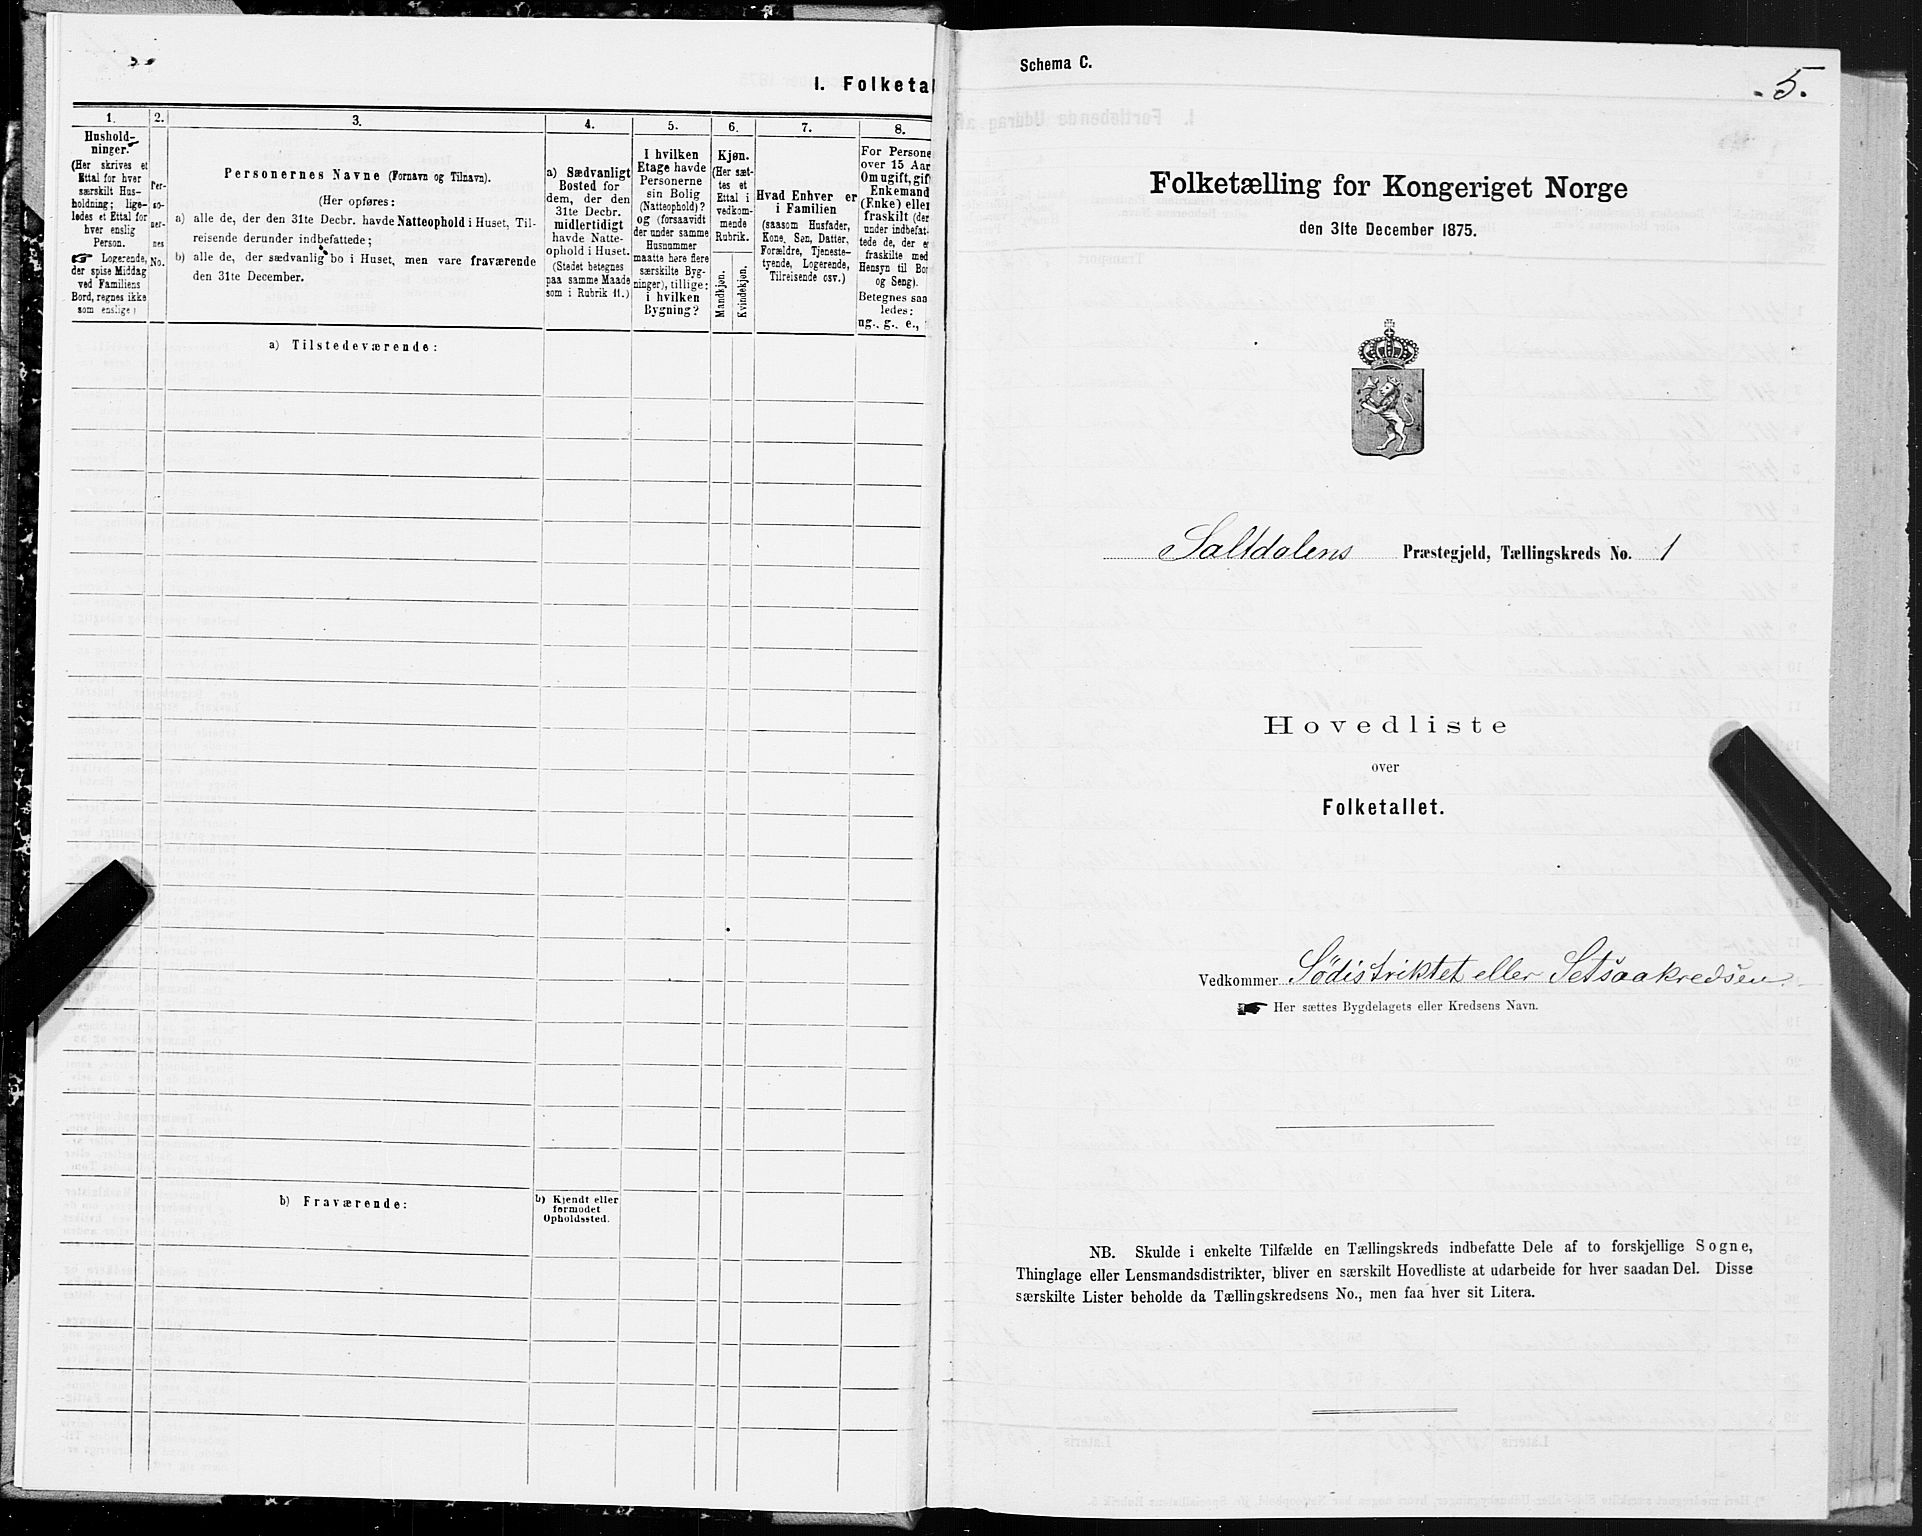 I. Folketal
1.
Hushold-
ninger.
(Her skrives et
Ettal for hver
særskilt Hus-
holdning; lige-
ledes et Ettal for
hver enslig
Person.
☛ Logerende,
der spise Middag
ved Familiens
Bord, regnes ikke
som enslige)
2.
Per-
so-
ner-
nes
No.
3.
Personernes Navne (Fornavn og Tilnavn).
(Her opføres:
a) alle de, der den 31te Decbr. havde Natteophold i Huset, Til-
reisende derunder indbefattede;
b) alle de, der sædvanlig bo i Huset, men vare fraværende
den 31te December.
4.
a) Sædvanligt
Bosted for
dem, der den
31te Decbr.
midlertidigt
havde Natte-
ophold i Huset.
(Stedet betegnes
paa samme Maade
som i Rubrik 11.)
5.
I hvilken
Etage havde
Personerne
sin Bolig
(Natteophold)?
og (forsaavidt
der under samme
Husnummer
maatte høre flere
særskilte Byg-
ninger), tillige:
i hvilken
Bygning?
6.
Kjøn.
(Her sæt-
tes et
Ettal i
vedkom-
mende
Rubrik.
Mandkjøn.
Kvindekjøn.
7.
Hvad Enhver er
i Familien
(saasom Husfader,
Kone, Søn, Datter,
Forældre, Tjeneste-
tyende, Logerende,
Tilreisende osv.)
8.
For Persone
over 15 Aar
Om ugift, gift
Enkemand
(Enke) eller
fraskilt (der
under indbefat-
tede de, der e
fraskilte med
Hensyn til Bor
og Seng).
Betegnes saa
ledes:
ug., g., e.,
a) Tilstedeværende:
b) Fraværende:
b) Kjendt eller
formodet
Opholdssted.
Schema C.
5.
Folketælling for Kongeriget Norge
den 31te December 1875.
Saltdalens Præstegjeld, Tællingskreds No. 1
Hovedliste
over
Folketallet.
Vedkommer Sødistriktet eller Setsaakredsen.
☛ Her sættes Bygdelagets eller Kredsens Navn.
NB. Skulde i enkelte Tilfælde en Tællingskreds indbefatte Dele af to forskjellige Sogne,
Thinglage eller Lensmandsdistrikter, bliver en særskilt Hovedliste at udarbeide for hver saadan Del. Disse
særskilte Lister beholde da Tællingskredsens No., men faa hver sit Litera.